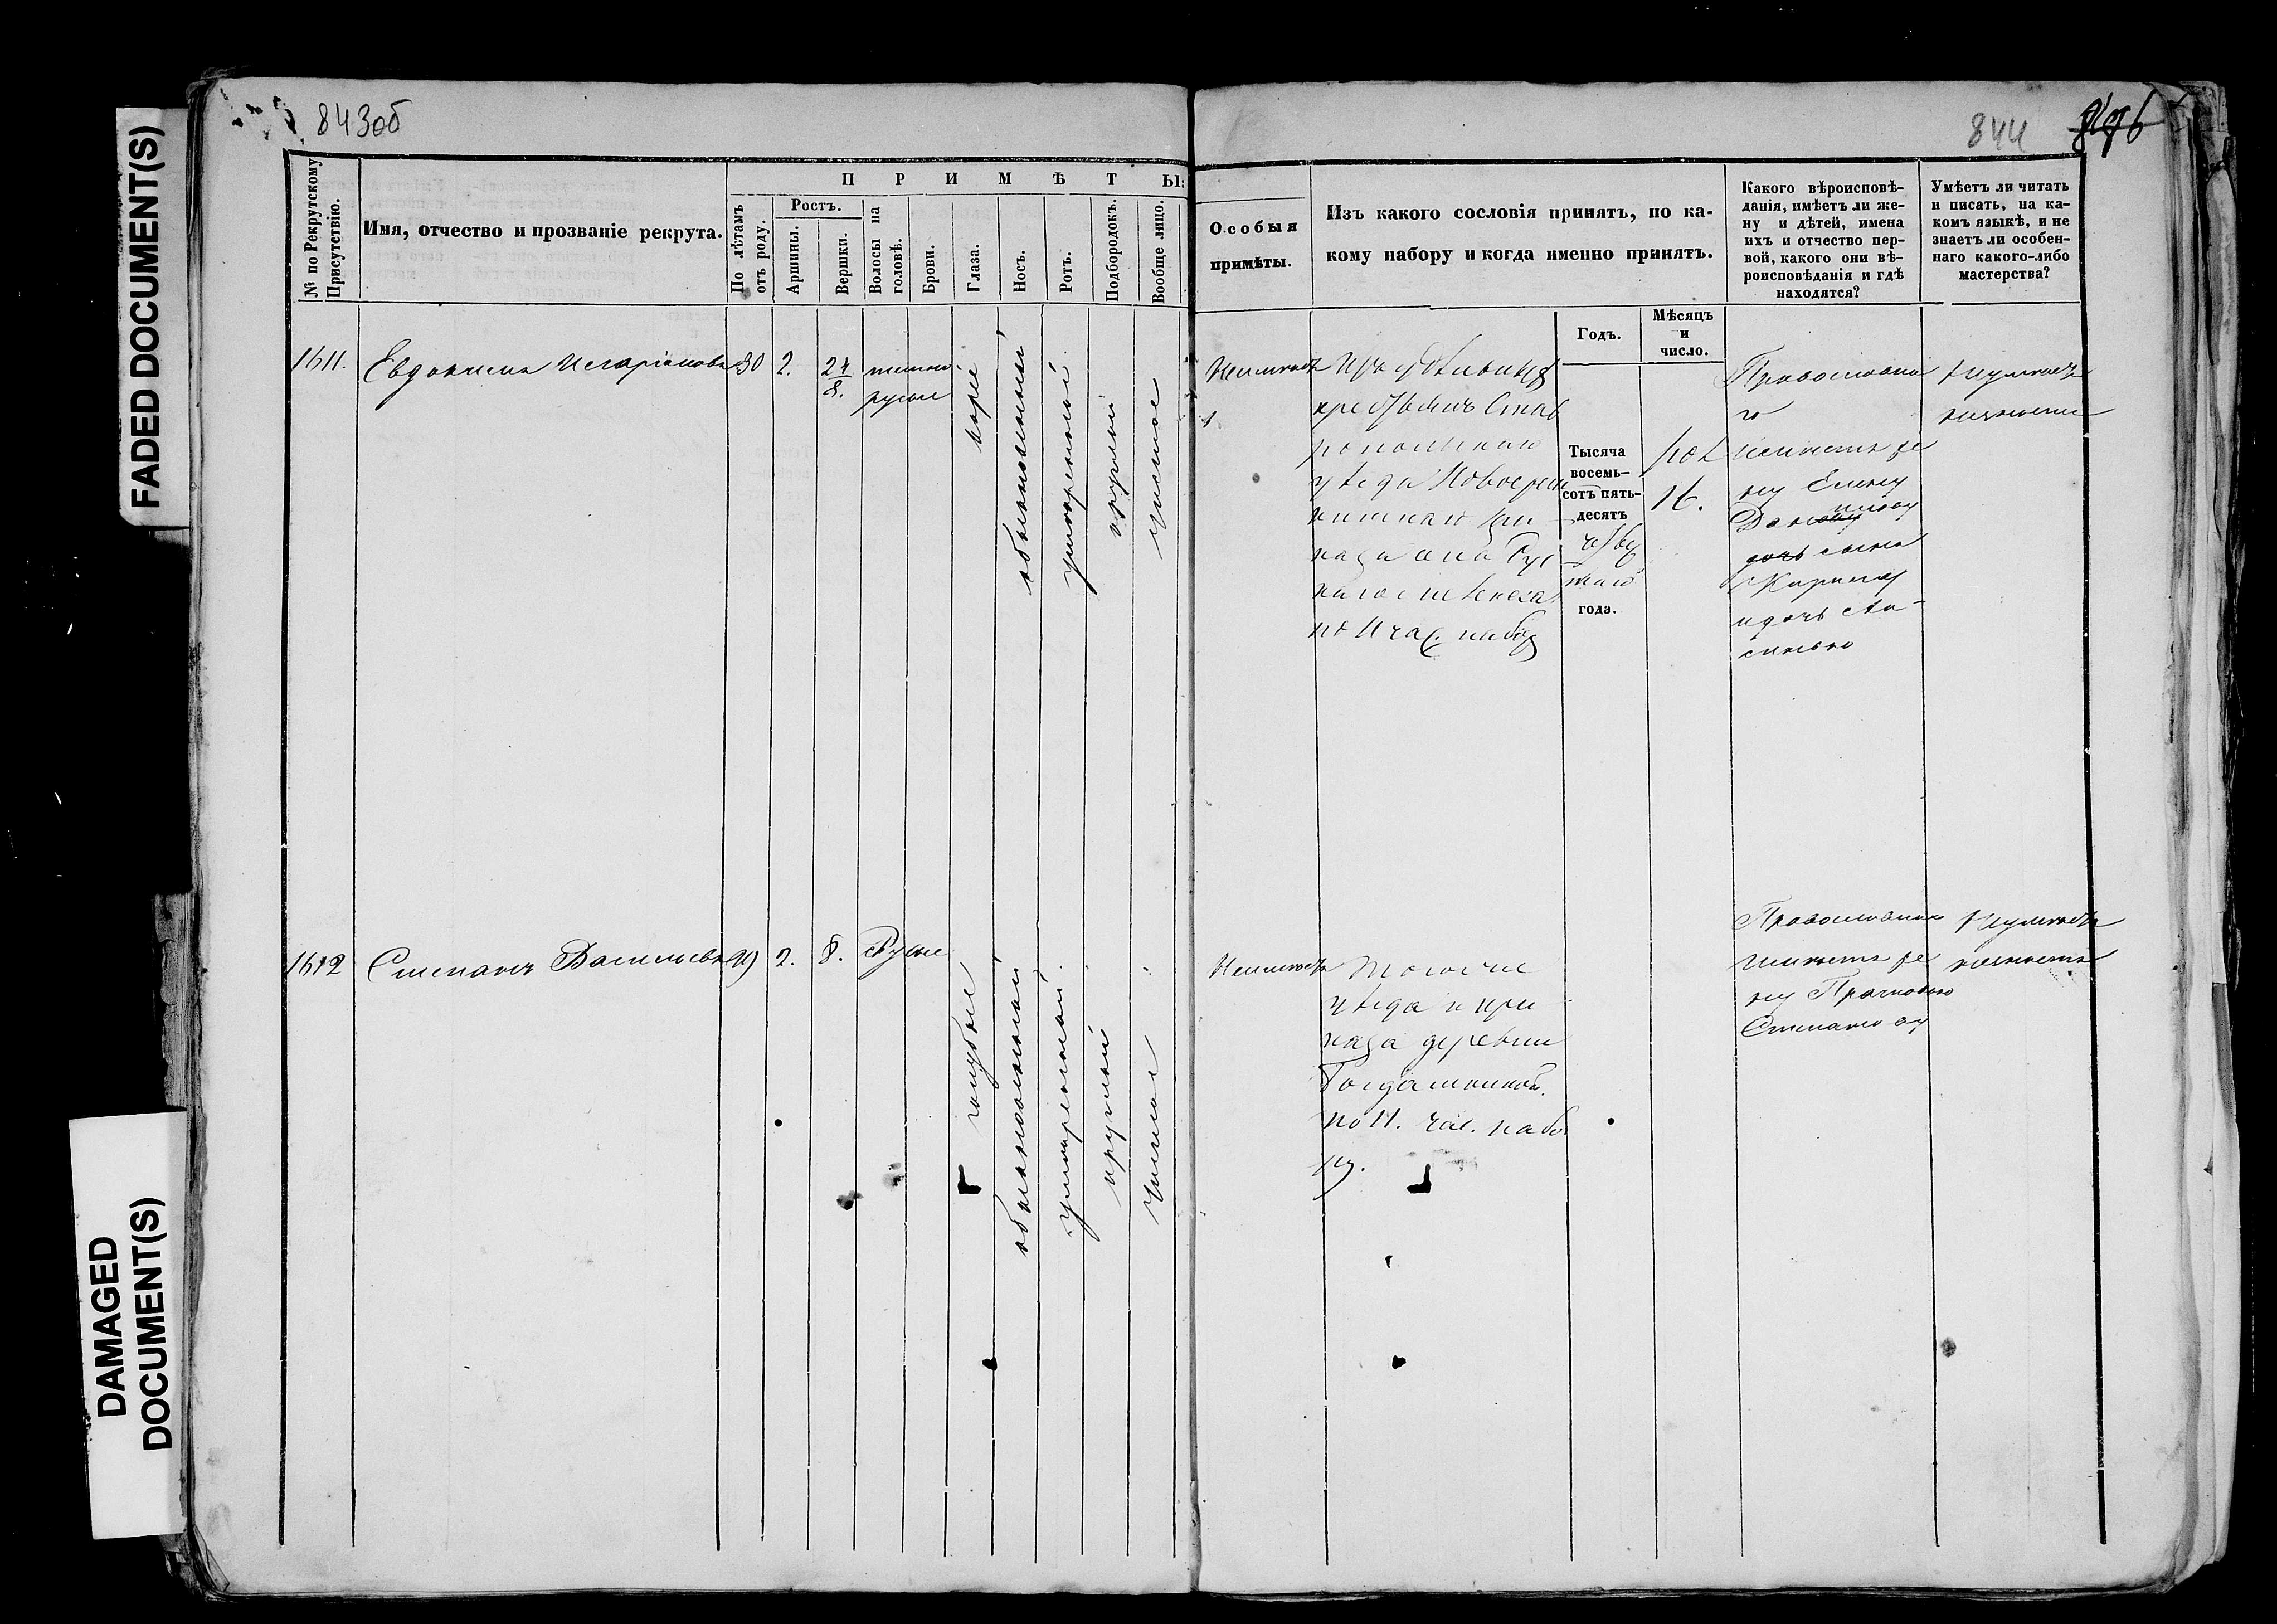 FADED DOCUMENT(S)
DAMAGED
DOCUMENT(S)
843об
844
№ по Рекрутскому
Присутствію.
Имя, отчество и прозваніе рекрута.
ПРИМѢТЫ:
По лѣтамъ
отъ роду.
Ростъ.
Аршины.
Вершки.
Волосы на
головѣ.
Брови.
Глаза.
Носъ.
Ротъ.
Подбородокъ.
Вообще лицо.
Особыя
примѣты.
Изъ какого сословія принятъ, по ка-
кому набору и когда именно принятъ.
Годъ.
Мѣсяцъ
и
число.
Какого вѣроисповѣ-
данія, имѣетъ ли же-
ну и дѣтей, имена
ихъ и отчество пер-
вой, какого они вѣ-
роисповѣданія и гдѣ
находятся?
Умѣетъ ли читать
и писать, на ка-
комъ языкѣ, и не
знаетъ ли особен-
наго какого-либо
мастерства?
1611.
Евдокимъ Иларіоновъ
30
2.
2 4/8.
темно
русые
каріе
обыкновенный
умѣренный
круглый
чистое
Неимѣетъ
Изъ удѣльныхъ
крестьянъ Став
ропольскаго
уѣзда
по II час. набору
Тысяча
восемь-
сотъ пять-
десятъ
года.
16.
Православна
го
имѣетъ же
ну Елену
сына
и дочь
Неумѣетъ
незнаетъ
1612
Степанъ Васильевъ
29
2.
8.
Русые
голубые
обыкновенный
умѣренный
круглый
Чистое
Неимѣетъ
Того же
уѣзда и при
каза деревни
по II. час. набо
ру.
Православнаго
имѣетъ же
ну Прасковью
Степанову
Неумѣетъ
незнаетъ